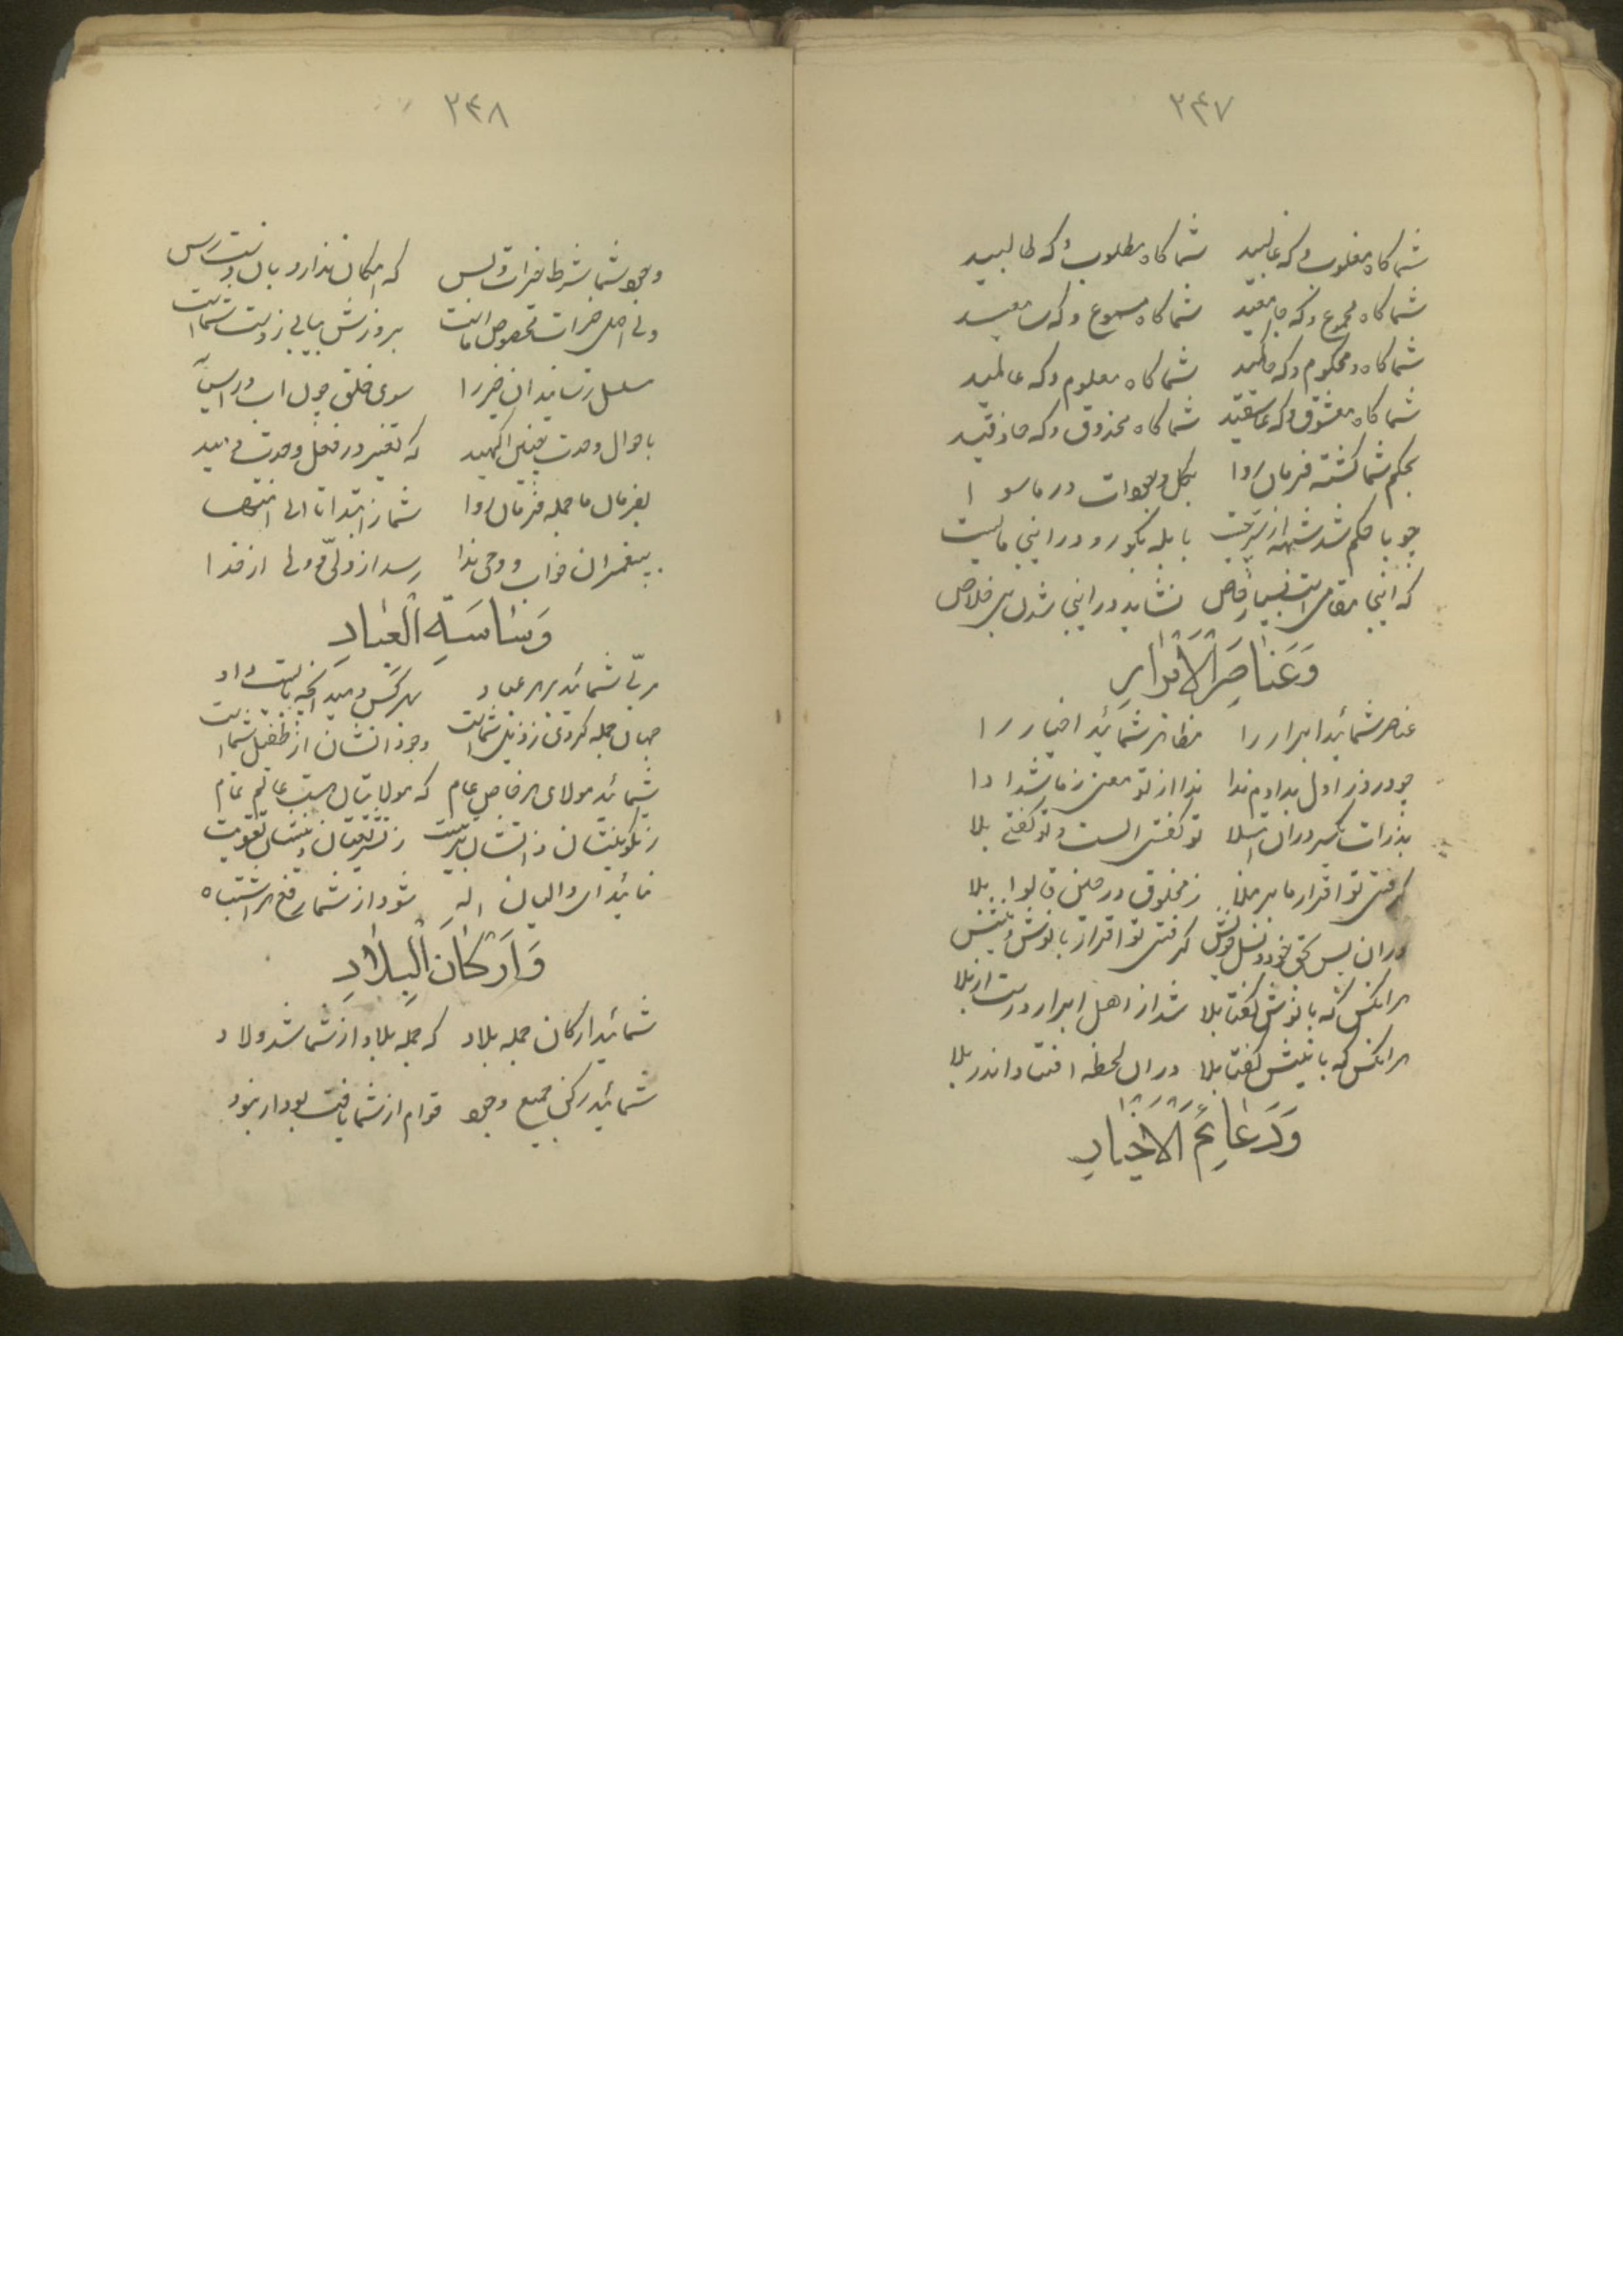 ۲۴۷
شما کاه مغلوب و که غالبید شما کاه مطلوب و که طالبید
شما کاه مجموع و که جامعید شما کاه مسموع و که سامعید
شما کاه محکوم و که حاکمید شما کاه معلوم و که عالمید
شما کاه معشوق و که عاشقید شما کاه محذوق و که حاذقید
بحکم شما کشته فرمان روا بکل وجودات در ماسوا
چو با حکم شد
که اینجا مقامی است بسیار خاص نشاید در اینجا شدن بی خلاص
وَعَنَاصِرَ الْاَبْرَارِ
عناصر شمائید ابرار را مظاهر شمائید اخیار را
چو در روز اول بدادم ندا ندا از تو معنی ز ما شد ادا
بذرات یکسر دران ابتلا تو کفتی الست و تو کفتی بلا
کرفتی تو اقرار ما بر ملا ز مخلوق در حین قالوا بلا
دران پس بحق خود و نسل خویش کرفتی تو اقرار با نوش و نیش
هر انکس که با نوش کفتا بلا شد از اهل ابرار و رست از بلا
هر انکس که با نیش کفتا بلا دران لحظه افتاد اندر بلا
وَدَعَائِمَ الْاَخْیَارِ
۲۴۸
وجود شما شرط خیرات و بس که امکان ندارد بان دست رس
ولی اصل خیرات مخصوص ماست بروزش بیابی ز دست شماست
سبیل رسانید ان خیر را سوی خلق چون اب در اسیا
باحوال وحدت چنین اکهید که تغییر در فعل وحدت دهید
بفرمان ما جمله فرمان روا شما ز ابتدا تا الی انتها
به پیغمبران خواب و وحی ندا رسد از ولی و ولی از خدا
وَسَاسَةَ الْعِبَادِ
مربّی شمائید بر هر عباد بهر کس دهید انچه بایست داد
جهان جمله کردی ز ذیل شماست وجود انشان از طفیل شماست
شمائید مولای هر خاص و عام که مولایتان هست عالم تمام
ز تکوینتان ذاتشان تربیت ز تشریعتان دینشان تقویت
نمائید ای والیان اله شود از شما رفع هر اشتباه
وَاَرْکَانَ الْبِلَادِ
شمائید ارکان جمله بلاد که جمله بلاد از شما شد ولاد
شمائید رکن جمیع وجود قوام از شما یافت بود ار نبود